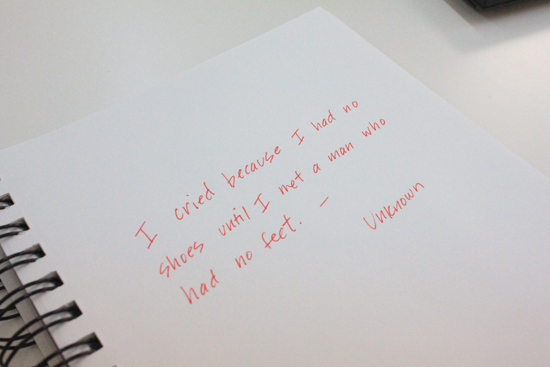 I cried because I had no
shoes until I met a man who
had no feet. -
Unknown